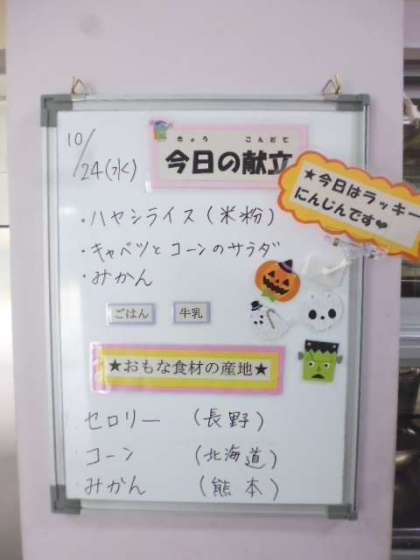 10/24(水)
きょう こんだて
今日の献立
★今日はラッキー
にんじんです♥
・ハヤシライス(米粉)
・キャベツとコーンのサラダ
・みかん
ごはん 牛乳
★おもな食材の産地★
セロリー (長野)
コーン (北海道)
みかん (熊本)